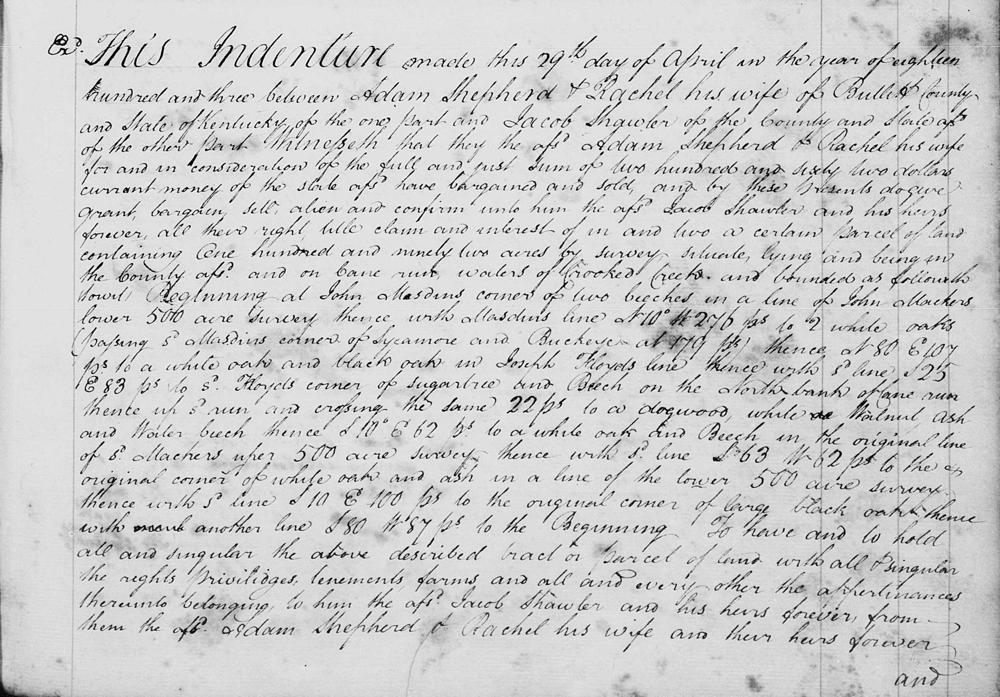 Exd. This Indenture made this 29th day of April in the year of eighteen
hundred and three between Adam Shepherd & Rachel his wife of Bullitt County
and State of Kentucky, of the one part and Jacob Shawler of the County and State afsd
of the other part Witnesseth that they the afsd Adam Shepherd & Rachel his wife
for and in consideration of the full and just Sum of two hundred and sixty two dollars
currant money of the state afsd have bargained and sold, and by these presents do give
grant, bargain, sell, alien and confirm unto him the afsd Jacob Shawler and his heirs
forever, all their right, title claim and interest of in and two a certain parcel of land
containing One hundred and ninety two acres by survey situate, lying and being in
the County afsd and on Cane run, waters of Crooked Creek and bounded as followeth
towit, Beginning at John Masdins corner of two beeches in a line of John Mackers
lower 500 acre survey thence with Masdins line N 10° W 276 ps to 2 white oaks
(passing sd Masdins corner of Sycamore and Buckeye at 179 ps) thence N 80 E 107
ps to a white oak and black oak in Joseph Floyds line thence with sd line S 25
E 83 ps to sd Floyds corner of sugartree and Beech on the North bank of Cane run
thence up sd run and crossing the same 22 ps to a dogwood, white Walnut, ash
and Water beech thence S 10° E 62 ps to a white oak and Beech in the original line
of sd Mackers uper 500 acre survey thence with sd line S 63 W 62 ps to the
original corner of white oak and ash in a line of the lower 500 acre survey
thence with sd line S 10 E 100 ps to the original corner of large black oak thence
with another line S 80 W 87 ps to the Beginning To have and to hold
all and singular the above described tract or parcel of land with all & singular
the rights privilidges, tenements farms and all and every other the appertinances
thereunto belonging, to him the afsd Jacob Shawler and his heirs forever, from
them the afsd Adam Shepherd & Rachel his wife and their heirs forever
and